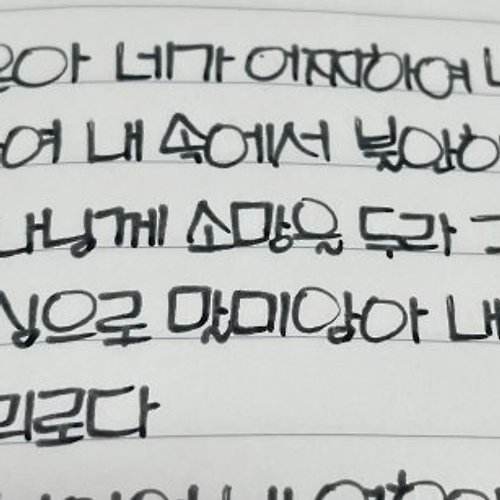 아 네가 어찌하여
여 내 속에서 불안하
나님께 소망을 두라 그
심으로 말미암아 내
리로다